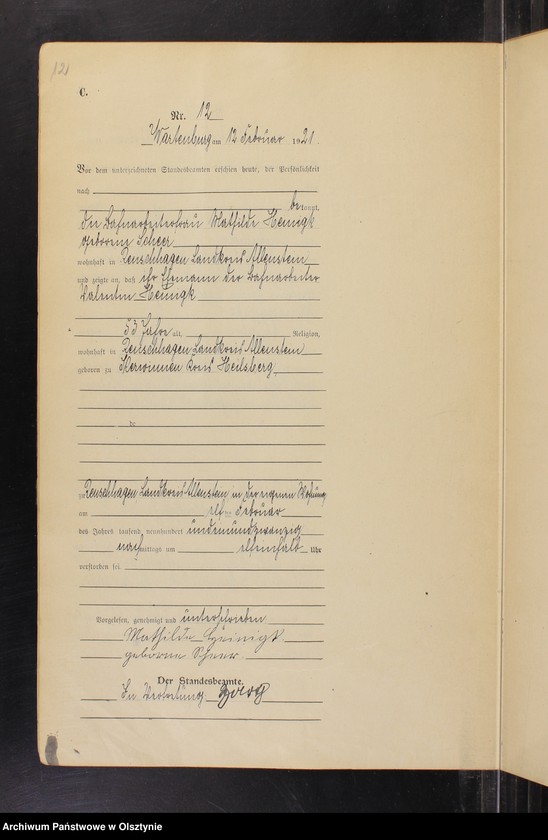 121
C.
Nr. 12
Wartenburg am 12 Februar 1921.
Vor dem unterzeichneten Standesbeamten erschien heute, der Persönlichkeit
nach
bekannt,
die Bahnarbeiterfrau Mathilde Heinigk
geborene Scheer
wohnhaft in Renschhagen Landkreis Allenstein
und zeigte an, daß ihr Ehemann der Bahnarbeiter
Valentin Heinigk
53 Jahre alt, Religion,
wohnhaft in Renschhagen Landkreis Allenstein
geboren zu Kreis Heilsberg
de
zu Renschhagen, Landkreis Allenstein in der eigenen Wohnung
am elften Februar
des Jahres tausend neunhundert undeinundzwanzig
nachmittags um elfeinhalb Uhr
verstorben sei.
Vorgelesen, genehmigt und unterschrieben.
Mathilde Heinigk
geborene Scheer
Der Standesbeamte.
In Vertretung
Archiwum Państwowe w Olsztynie